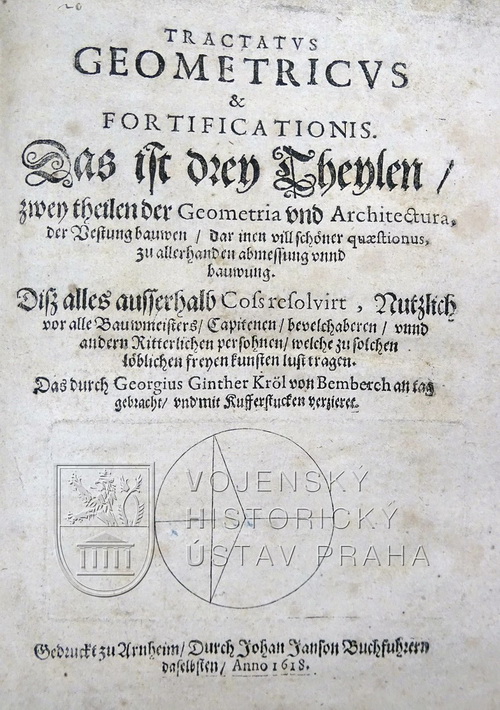 TRACTATVS
GEOMETRICVS
&
FORTIFICATIONIS.
Das ist drey Theylen /
zwey theilen der Geometria vnd Architectura,
der Vestung bauwen / dar inen vill schöner quæstionus,
zu allerhanden abmessung vnnd
bauwung.
Diß alles ausserhalb Coss resolvirt , Nutzlich
vor alle Bauwmeisters / Capitenen / bevelchaberen / vnnd
andern Ritterlichen persohnen / welche zu solchen
löblichen freyen kunsten lust tragen.
Das durch Georgius Ginther Kröl von Bemberch an tag
gebracht / vnd mit Kufferstucken verzieret.
VOJENSKÝ
HISTORICKÝ
ÚSTAV PRAHA
Gedruckt zu Arnheim / Durch Johan Janson Buchfuhrern
daselbsten / Anno 1618.